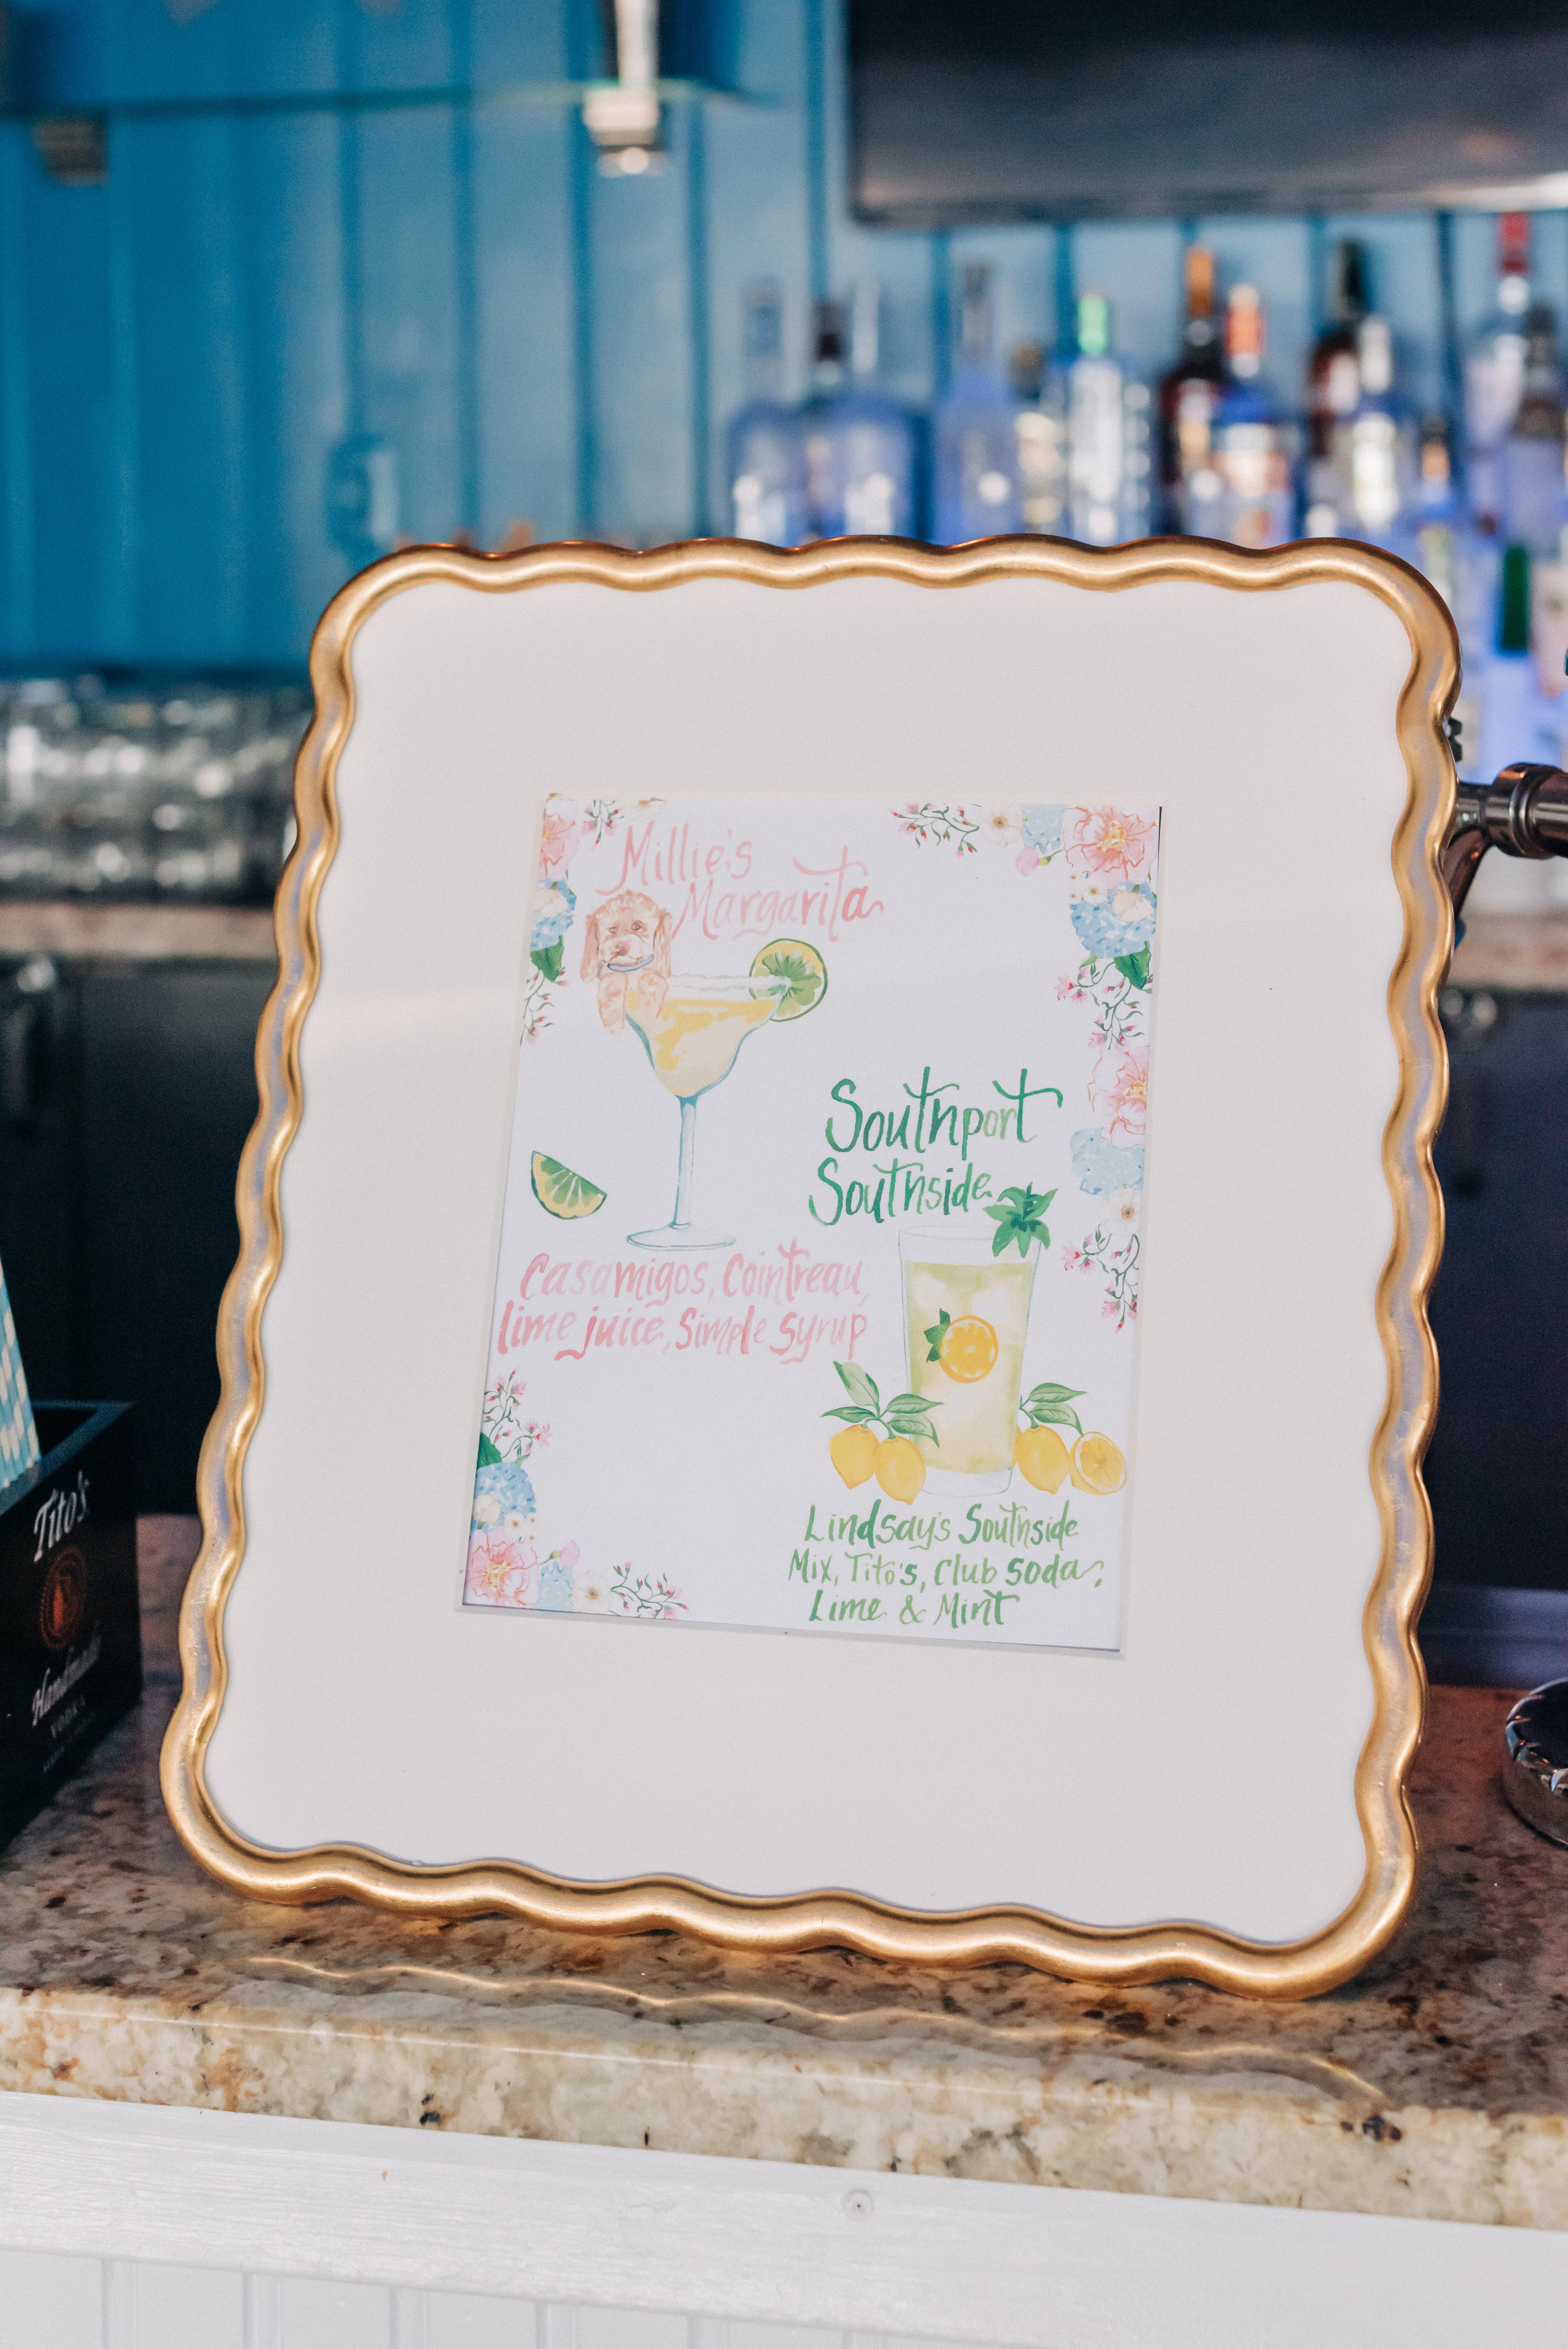 Millie's
Margarita
Southport
Southside
Casamigos, Cointreau,
lime juice, Simple Syrup
Lindsay's Southside
Mix, Tito's, Club Soda,
Lime & Mint
Tito's
Handmade
VODKA